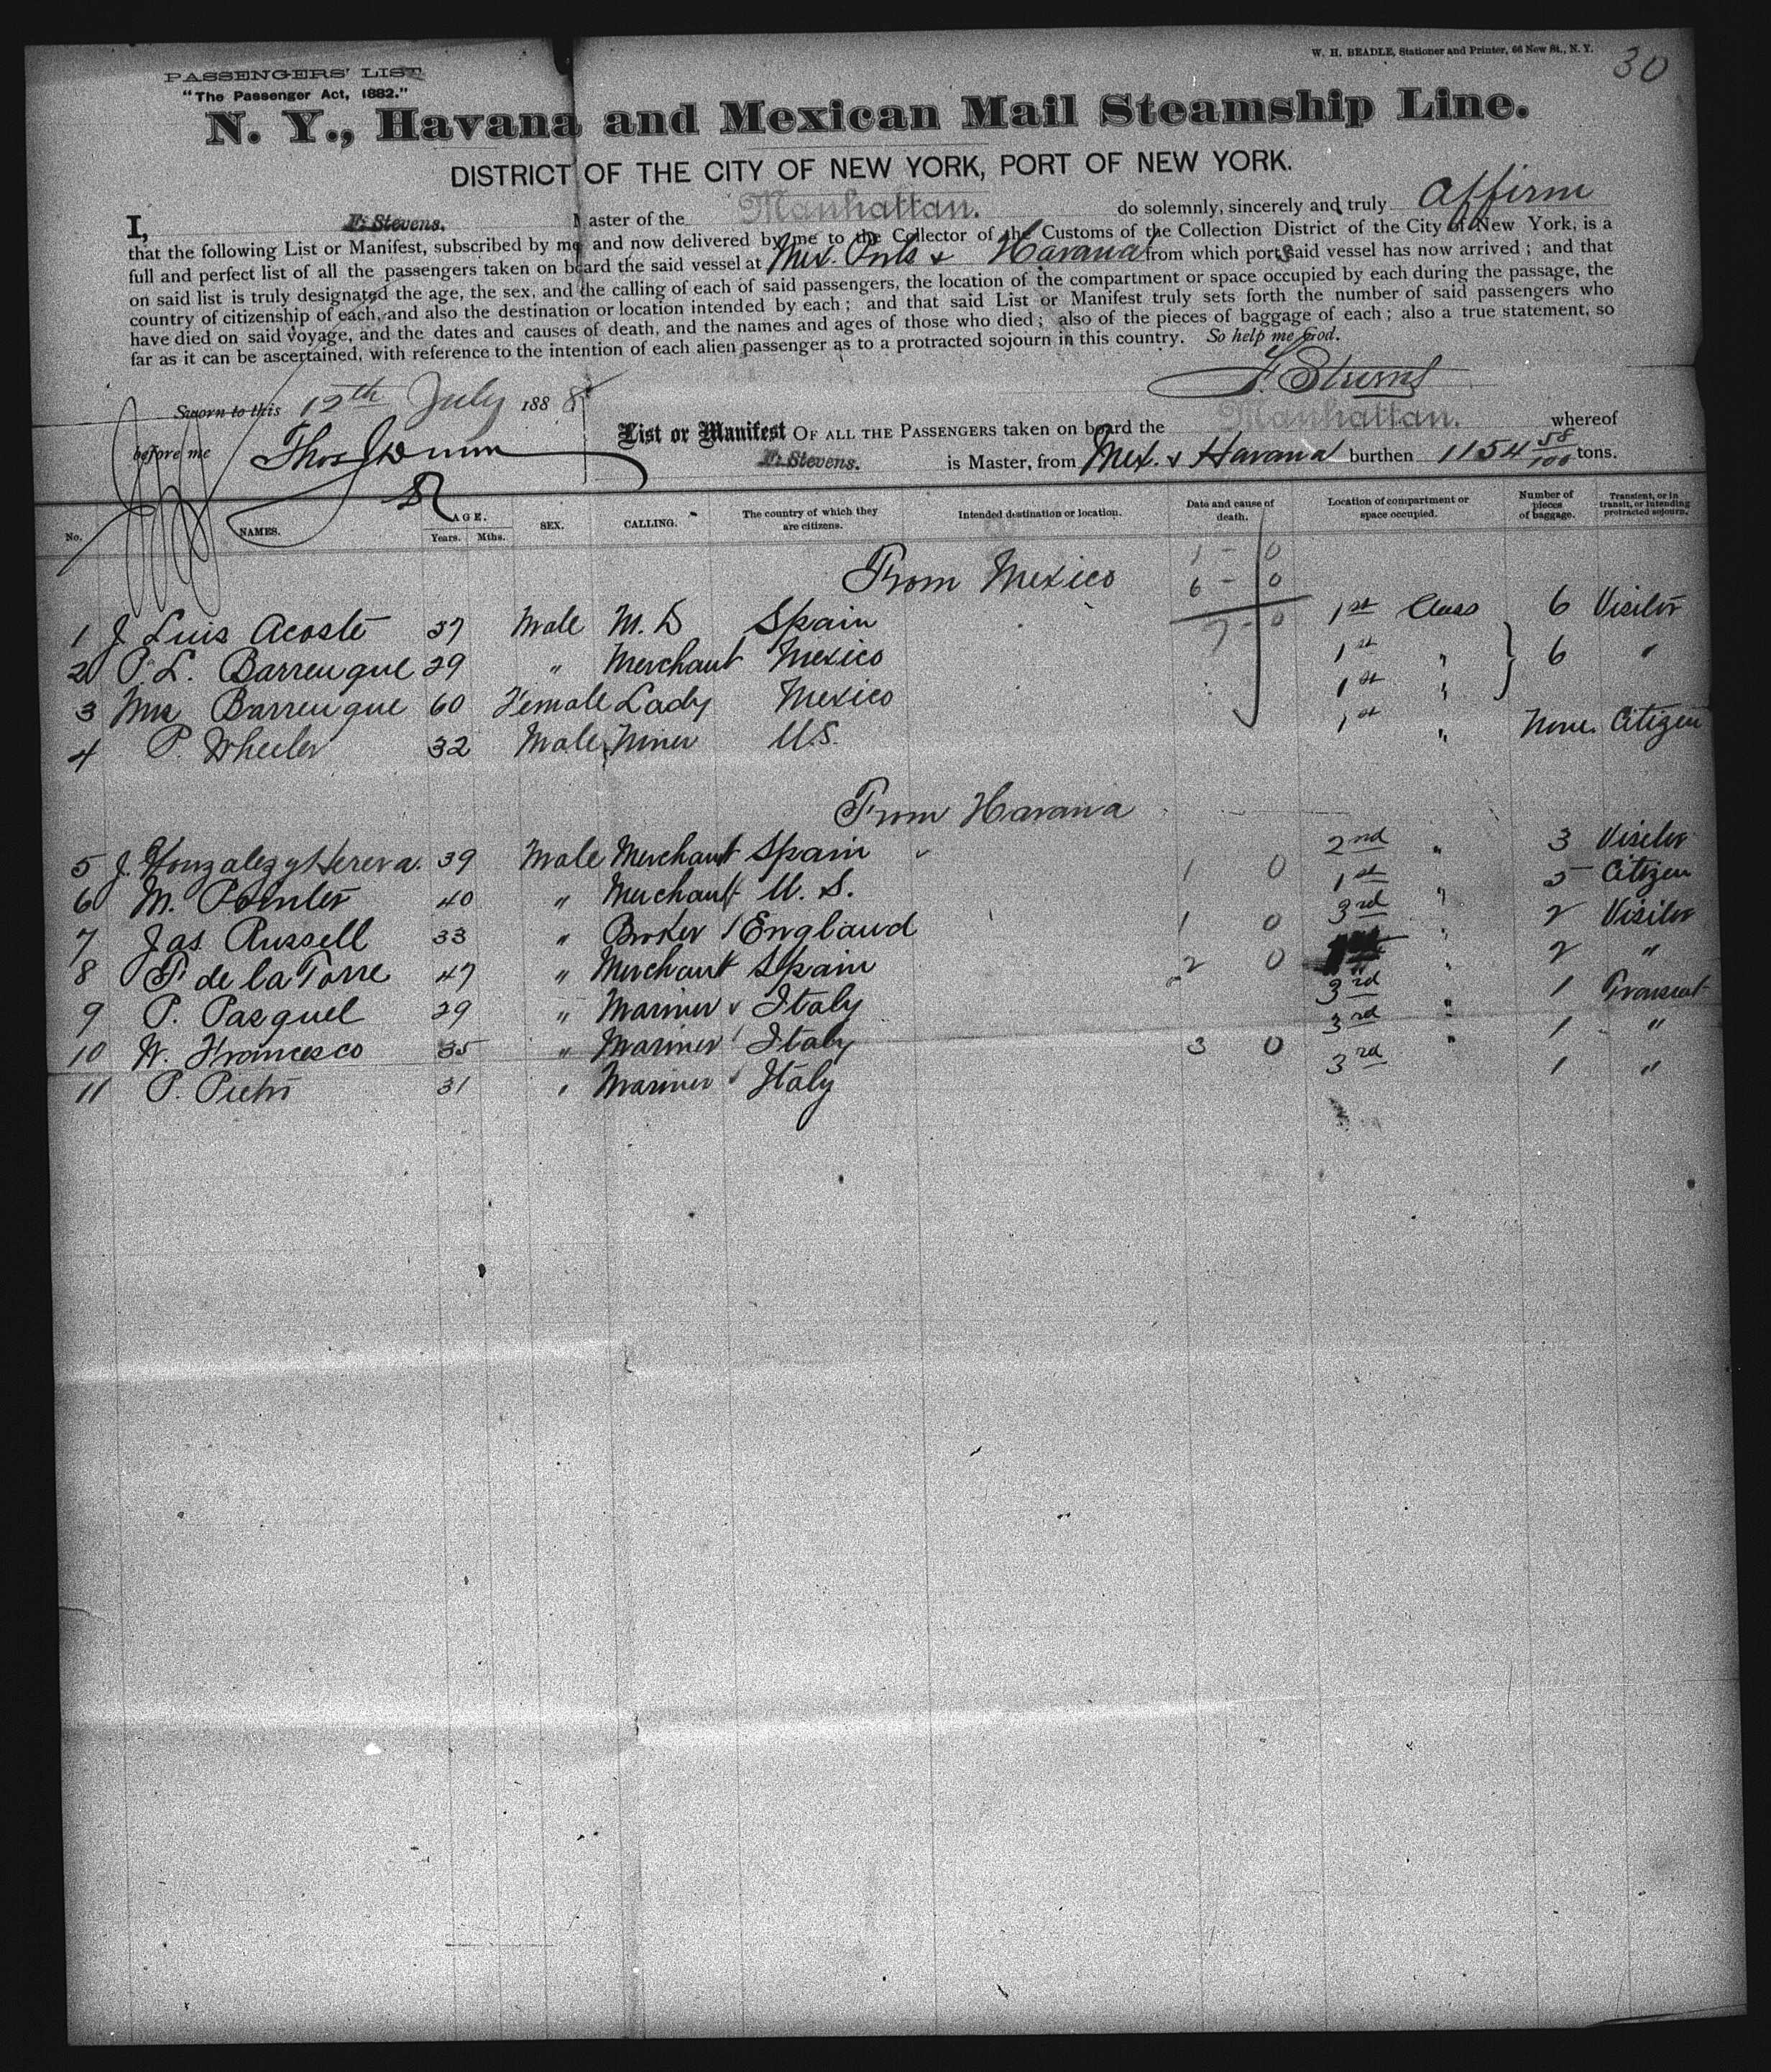 W. H. BEADLE, Stationer and Printer, 66 New St., N. Y.
30
PASSENGERS' LIST
"The Passenger Act, 1882."
N. Y., Havana and Mexican Mail Steamship Line.
DISTRICT OF THE CITY OF NEW YORK, PORT OF NEW YORK.
I, F. Stevens. Master of the Manhattan. do solemnly, sincerely and truly Affirm
that the following List or Manifest, subscribed by me and now delivered by me to the Collector of the Customs of the Collection District of the City of New York, is a
full and perfect list of all the passengers taken on board the said vessel at Mex. Ports & Havana from which ports said vessel has now arrived; and that
on said list is truly designated the age, the sex, and the calling of each of said passengers, the location of the compartment or space occupied by each during the passage, the
country of citizenship of each, and also the destination or location intended by each; and that said List or Manifest truly sets forth the number of said passengers who
have died on said voyage, and the dates and causes of death, and the names and ages of those who died; also of the pieces of baggage of each; also a true statement, so
far as it can be ascertained, with reference to the intention of each alien passenger as to a protracted sojourn in this country. So help me God.
F. Stevens
Sworn to this 12th July 1888
before me Thos J Dunn
List or Manifest OF ALL THE PASSENGERS taken on board the Manhattan. whereof
F. Stevens. is Master, from Mex. & Havana burthen 1154 58/100 tons.
No. NAMES. AGE. Years. Mths. SEX. CALLING. The country of which they are citizens. Intended destination or location. Date and cause of death. Location of compartment or space occupied. Number of pieces of baggage. Transient, or in transit, or intending protracted sojourn.
From Mexico
1 - 0
6 - 0
7 - 0
1 J Luis Acoste 37 Male M. D Spain 1st Class 6 Visitor
2 P. L. Barreuque 29 " Merchant Mexico 1st " 6 "
3 Mrs Barreuque 60 Female Lady Mexico 1st "
4 P. Wheeler 32 Male Miner U.S. 1st " None. Citizen
From Havana
5 J. Gonzalez y Hereva. 39 Male Merchant Spain 2nd " 3 Visitor
6 M. 40 " Merchant U. S. 1 0 1st 5 Citizen
7 Jas Russell 33 " Broker England 1 0 3rd " 2 Visitor
8 P. de la Torre 47 " Merchant Spain 2 0 " 2 "
9 P. Pasquel 29 " Mariner Italy 3rd " 1 Transient
10 W. Francesco 35 " Mariner Italy 3 0 3rd " 1 "
11 P. Pietri 31 " Mariner Italy 3rd 1 "